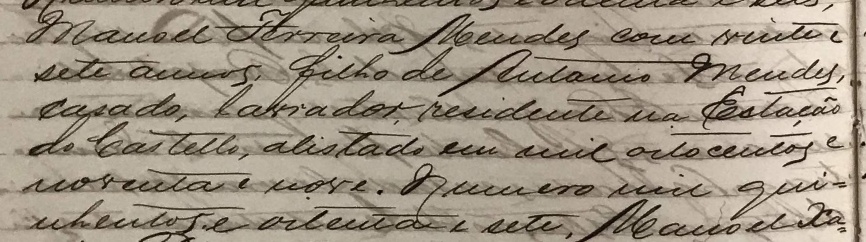 quinhentos e oitenta e seis,
Manoel Ferreira Mendes com vinte e
sete annos, filho de Antonio Mendes,
casado, lavrador, residente na Estação
do Castello, alistado em mil oitocentos e
noventa e nove. Numero mil qui-
nhentos e oitenta e sete, Manoel Xa-